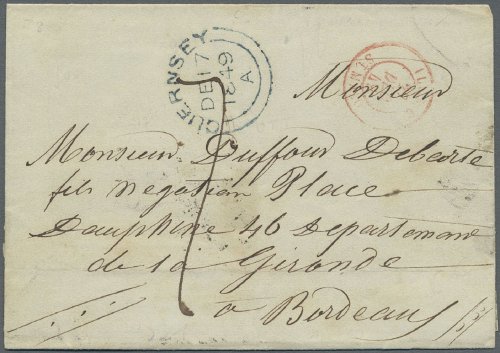 GUERNSEY
DE 17
1849
A
Monsieur
Monsieur Duffour Debarte
fils negatian Place
Dauphine 46 Departeman
de la Gironde
a Bordeaux
7